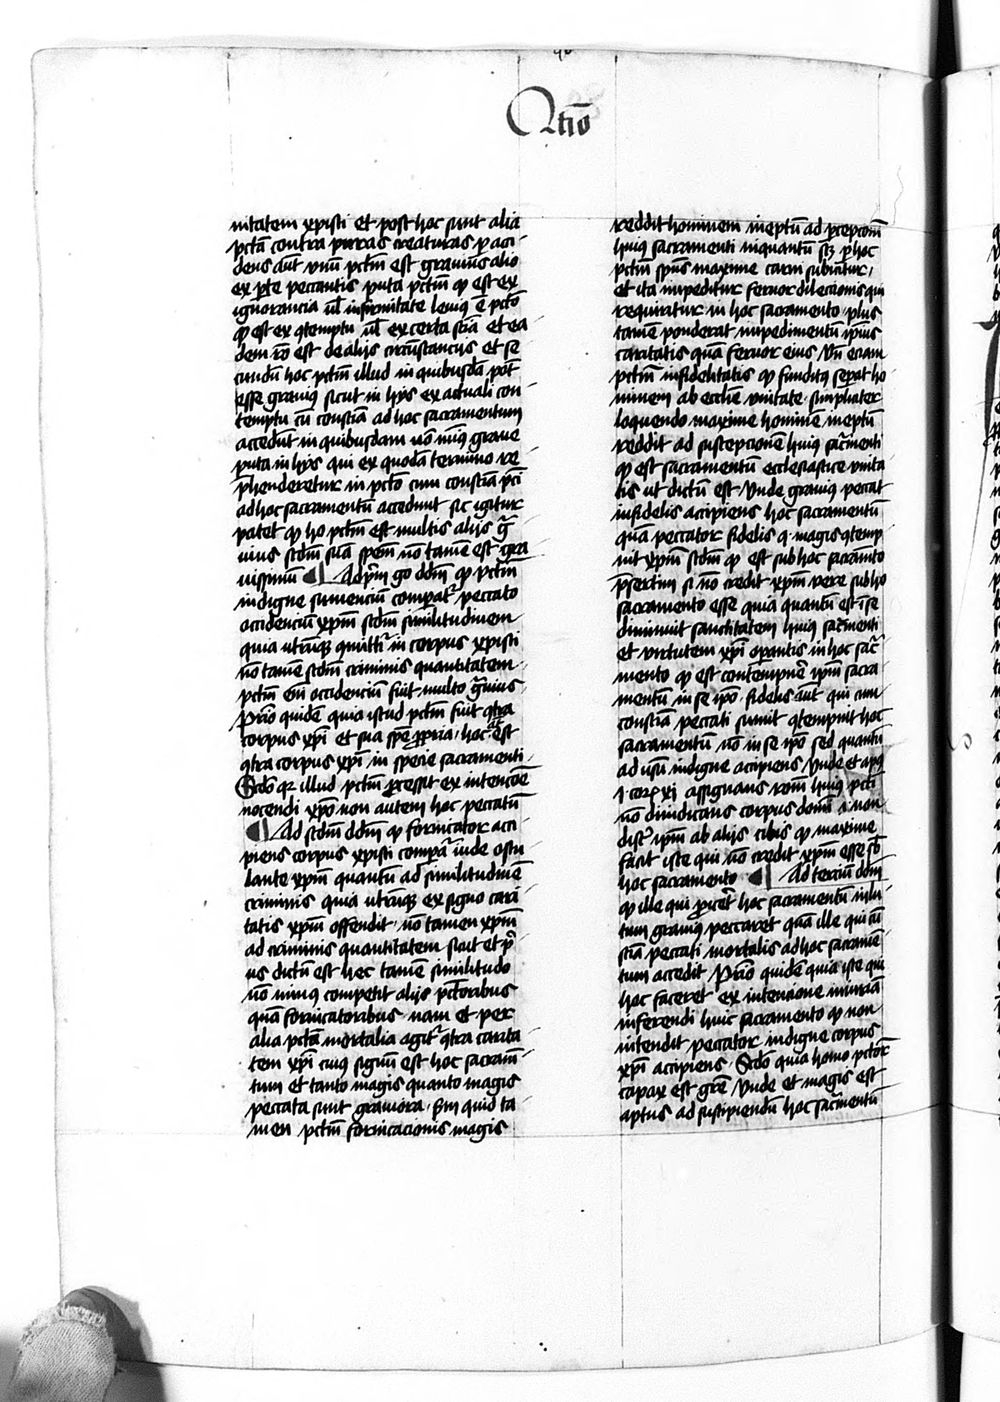 Q̄tio
nitatem xp̄isti et post hoc sunt alia
pctā contra puras creaturas p acci
dens aūt vnū pctm̄ est grauius alio
ex pte peccantis puta pctm̄ qd est ex
ignorancia ul̄ infirmitate leuiꝰ ē pctō
qd est ex ꝯtemptu ul̄ ex certa scīa et ea
dem rō est de alijs circūstancijs et se
cundū hoc pctm̄ illud in quibusdā pot̄
esse grauiꝰ sicut in hijs ex actuali con
temptu cū consciā ad hoc sacramentum
accedūt in quibusdam uō minꝰ graue
puta in hijs qui ex quodā termino re
p̄henderetur in pctō cum consciā pcti
ad hoc sacramentū accedunt sic igitur
patet qd ho pctm̄ est multis alijs gͣ
uius scdm̄ suā spēm nō tamē est gra
uissimū ¶ Ad pm̄ go ddm̄ qd pctm̄
indigne sumenciū compatᷣ peccato
occidenciū xpm̄ scdm̄ similitudinem
quia utrūqꝫ ꝯmittiᷣ in corpus xp̄isti
nō tamē scdm̄ criminis quantitatem
pctm̄ em̄ occidenciū fuit multo gͣuius
Prīo quidē quia istud pctm̄ fuit ꝯtra
corpus xpi et sua spē ꝓpria hoc aūt est
ꝯtra corpus xpi in specie sacramenti
Scdo qꝛ illud pctm̄ ꝓcessit ex intencōe
nocendi xpo non autem hoc peccatū
¶ Ad scdm̄ ddm̄ qd fornicator acci
piens corpus xp̄isti compaᷣ iude oscu
lante xpm̄ quantū ad similitudinē
criminis quia utrūqꝫ ex signo cari
tatis xpm̄ offendit nō tamen xpm̄
ad criminis quantitatem sicut et p̄
us dictū est hec tamē similitudo
nō minꝰ competit alijs pctoribus
quā fornicatoribus nam et per
alia pctā mortalia agitᷣ ꝯtra carita
tem xpi cuiꝰ signū est hoc sacramē
tum et tanto magis quanto magis
peccata sunt grauiora Sm̄ quid ta
men pctm̄ fornicacionis magis
reddit hominem ineptū ad pcepcōm̄
huiꝰ sacramenti inquantū scꝫ p hoc
pctm̄ spūs maxime carni subicitur
et ita impeditur feruor dilectionis qui
requiratur in hoc sacramento plus
tamē ponderat impedimentū ipsius
caritatis quā feruor eius Vn̄ eciam
pctm̄ infidelitatis qd funditꝰ sepat ho
minem ab ecclīe vnitate simpliciter
loquendo maxime hominē ineptū
reddit ad suscepcionē huiꝰ sacͣmenti
qd est sacramentū ecclesiastice vnita
tis ut dictū est Vnde grauiꝰ peccat
infidelis accipiens hoc sacramentū
quā peccator fidelis q magis ꝯtemp
nit xpm̄ scdm̄ qd est sub hoc sacramēto
p̄sertim si nō credit xpm̄ vere sub hoc
sacramento esse quia quantū est ī se
diminuit sanctitatem huiꝰ sacͣmenti
et virtutem xpi opantis in hoc sacͣ
mento qd est contempnē ipm̄ sacra
mentū in se ipo fidelis aūt qui cum
consciā peccati sumit ꝯtempnit hoc
sacramentū nō in se ipo sed quantū
ad usū indigne accipiens Vnde et aplꝰ
i cor xi assignans rōm̄ huiꝰ pcti
nō diiudicans corpus domī i non
discᷣ ipm̄ ab alijs cibis qd maxime
facit iste qui nō credit xpm̄ esse sb
hoc sacramento ¶ Ad terciū ddm̄
qd ille qui ꝓiceᷣt hoc sacramentū in lu
tum grauiꝰ peccaret quā ille qui cū
scīa peccati mortalis ad hoc sacramē
tum accedit Prīo quidē quia iste qui
hoc faceret ex intencione iniuriā
inferendi huic sacramento qd non
intendit peccator indigne corpus
xpi accipiens Scdo quia homo pctor
capax est grē Vnde et magis est
aptus ad suscipiendū hoc sacͣmentū